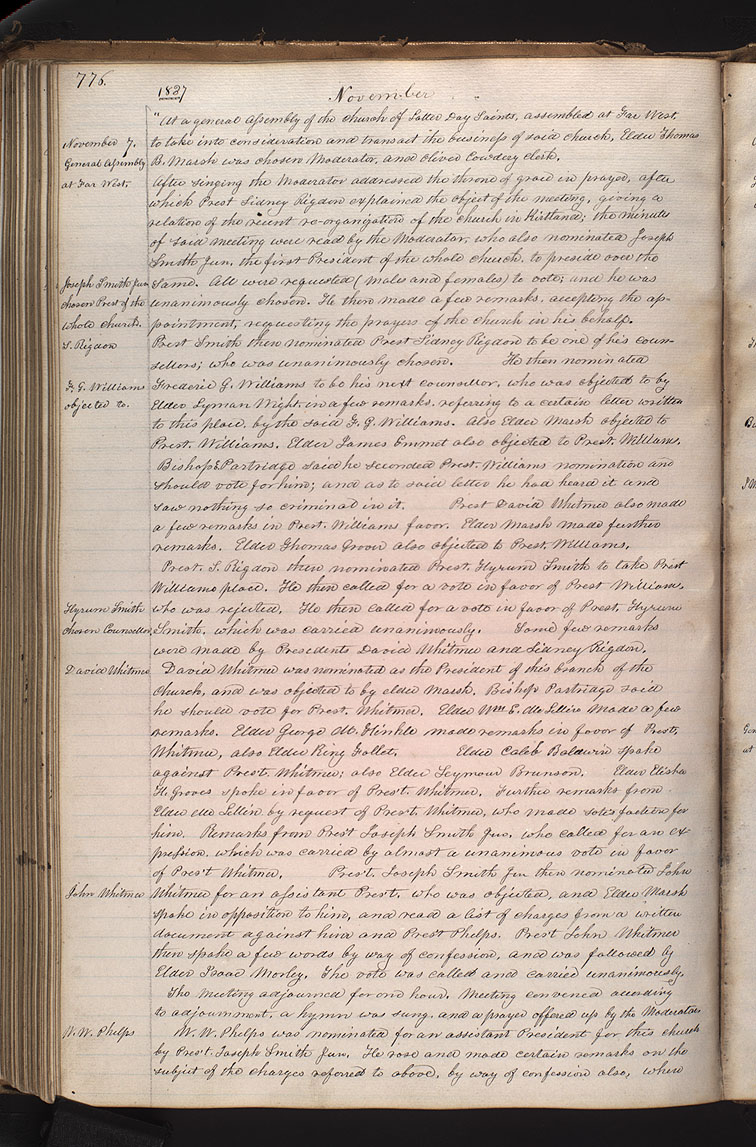 776.
1837
November
"At a general assembly of the church of Latter Day Saints, assembled at Far West,
November 7.
General Assembly
at Far West.
to take into consideration and transact the business of said church, Elder Thomas
B. Marsh was chosen Moderator, and Oliver Cowdery clerk.
After singing the Moderator addressed the throne of grace in prayer, after
which Prest Sidney Rigdon explained the object of the meeting, giving a
relation of the recent re-organization of the church in Kirtland; the minutes
of said meeting were read by the Moderator, who also nominated Joseph
Smith Jun. the first President of the whole church, to preside over the
Joseph Smith Jun
chosen Prest of the
whole church.
same. All were requested (males and females) to vote; and he was
unanimously chosen. He then made a few remarks, accepting the ap-
pointment, requesting the prayers of the church in his behalf.
S. Rigdon
Prest Smith then nominated Prest Sidney Rigdon to be one of his coun-
sellors; who was unanimously chosen. He then nominated
F. G. Williams
objected to.
Frederic G. Williams to be his next counsellor, who was objected to by
Elder Lyman Wight in a few remarks referring to a certain letter written
to this place by the said F. G. Williams. Also Elder Marsh objected to
Prest. Williams. Elder James Emmet also objected to Prest. Williams.
Bishop E Partridge said he seconded Prest. Williams nomination and
should vote for him; and as to said letter he had heard it and
saw nothing so criminal in it. Prest David Whitmer also made
a few remarks in Prest. Williams favor. Elder Marsh made further
remarks. Elder Thomas Grover also objected to Prest. Williams.
Prest. S. Rigdon then nominated Prest. Hyrum Smith to take Prest
Williams place. He then called for a vote in favor of Prest Williams,
Hyrum Smith
chosen Counsellor,
who was rejected. He then called for a vote in favor of Prest. Hyrum
Smith, which was carried unanimously. Some few remarks
were made by Presidents David Whitmer and Sidney Rigdon.
David Whitmer
David Whitmer was nominated as the President of this branch of the
church, and was objected to by elder Marsh. Bishop Partridge said
he should vote for Prest. Whitmer. Elder Wm. E. Mc Lellin made a few
remarks. Elder George M. Hinkle made remarks in favor of Prest.
Whitmer, also Elder King Follet. Elder Caleb Baldwin spake
against Prest. Whitmer; also Elder Seymour Brunson. Elder Elisha
H. Groves spoke in favor of Prest. Whitmer. Further remarks from
Elder Mc Lellin by request of Prest. Whitmer, who made satisfaction for
him. Remarks from Prest Joseph Smith Jun. who called for an ex
pression, which was carried by almost a unanimous vote in favor
of Prest Whitmer. Prest. Joseph Smith Jun then nominated John
John Whitmer
Whitmer for an assistant Prest. who was objected, and Elder Marsh
spake in opposition to him, and read a list of charges from a written
document against him and Prest Phelps. Prest John Whitmer
then spake a few words by way of confession, and was followed by
Elder Isaac Morley. The vote was called and carried unanimously.
The meeting adjourned for one hour. Meeting convened according
to adjournment, a hymn was sung, and a prayer offered up by the Moderator
W. W. Phelps
W. W. Phelps was nominated for an assistant President for this church
by Prest. Joseph Smith Jun. He rose and made certain remarks on the
subject of the charges referred to above, by way of confession also, where